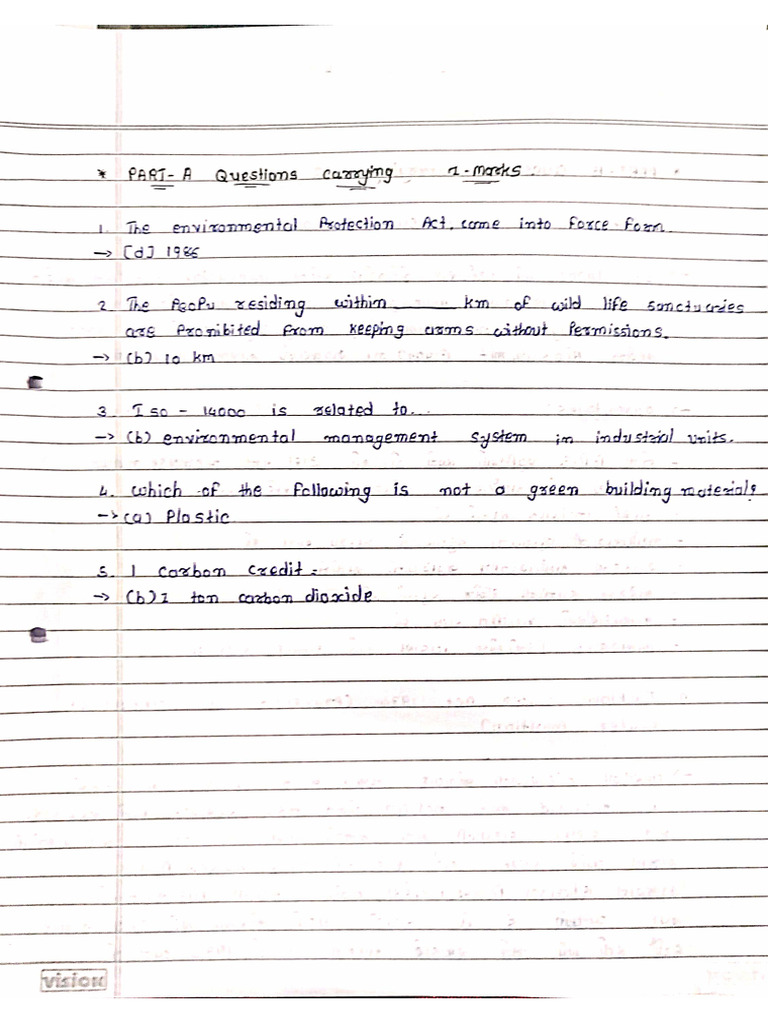 * PART-A Questions carrying 1-Marks
1. The environmental Protection Act, come into force form.
→ [d] 1986
2. The People residing within ______ km of wild life sanctuaries
are Prohibited from keeping arms without Permissions.
→ (b) 10 km
3. ISO - 14000 is related to...
→ (b) environmental management system in industrial units.
4. which of the following is not a green building material?
→ (a) Plastic
5. 1 Carbon Credit =
→ (b) 1 ton carbon dioxide
vision